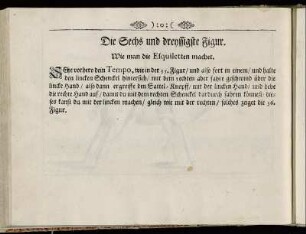 ):o:(
Die Sechs und dreyssigste Figur.
Wie man die Esquisetten machet.
vordere dein Tempo, wie in der 35. Figur/ und also fort in einen/ und halte
den lincken Schenckel hinterlich/ mit dem rechten aber fahre geschwind über die
lincke Hand/ also dann ergreiffe den Sattel-Knopff/ mit der lincken Hand/ und hebe
die rechte Hand auf/ damit du mit dem rechten Schenckel dardurch fahren könnest; die-
ses kanst du mit der lincken machen/ gleich wie mit der rechten/ solches zeiget die 36.
Figur.